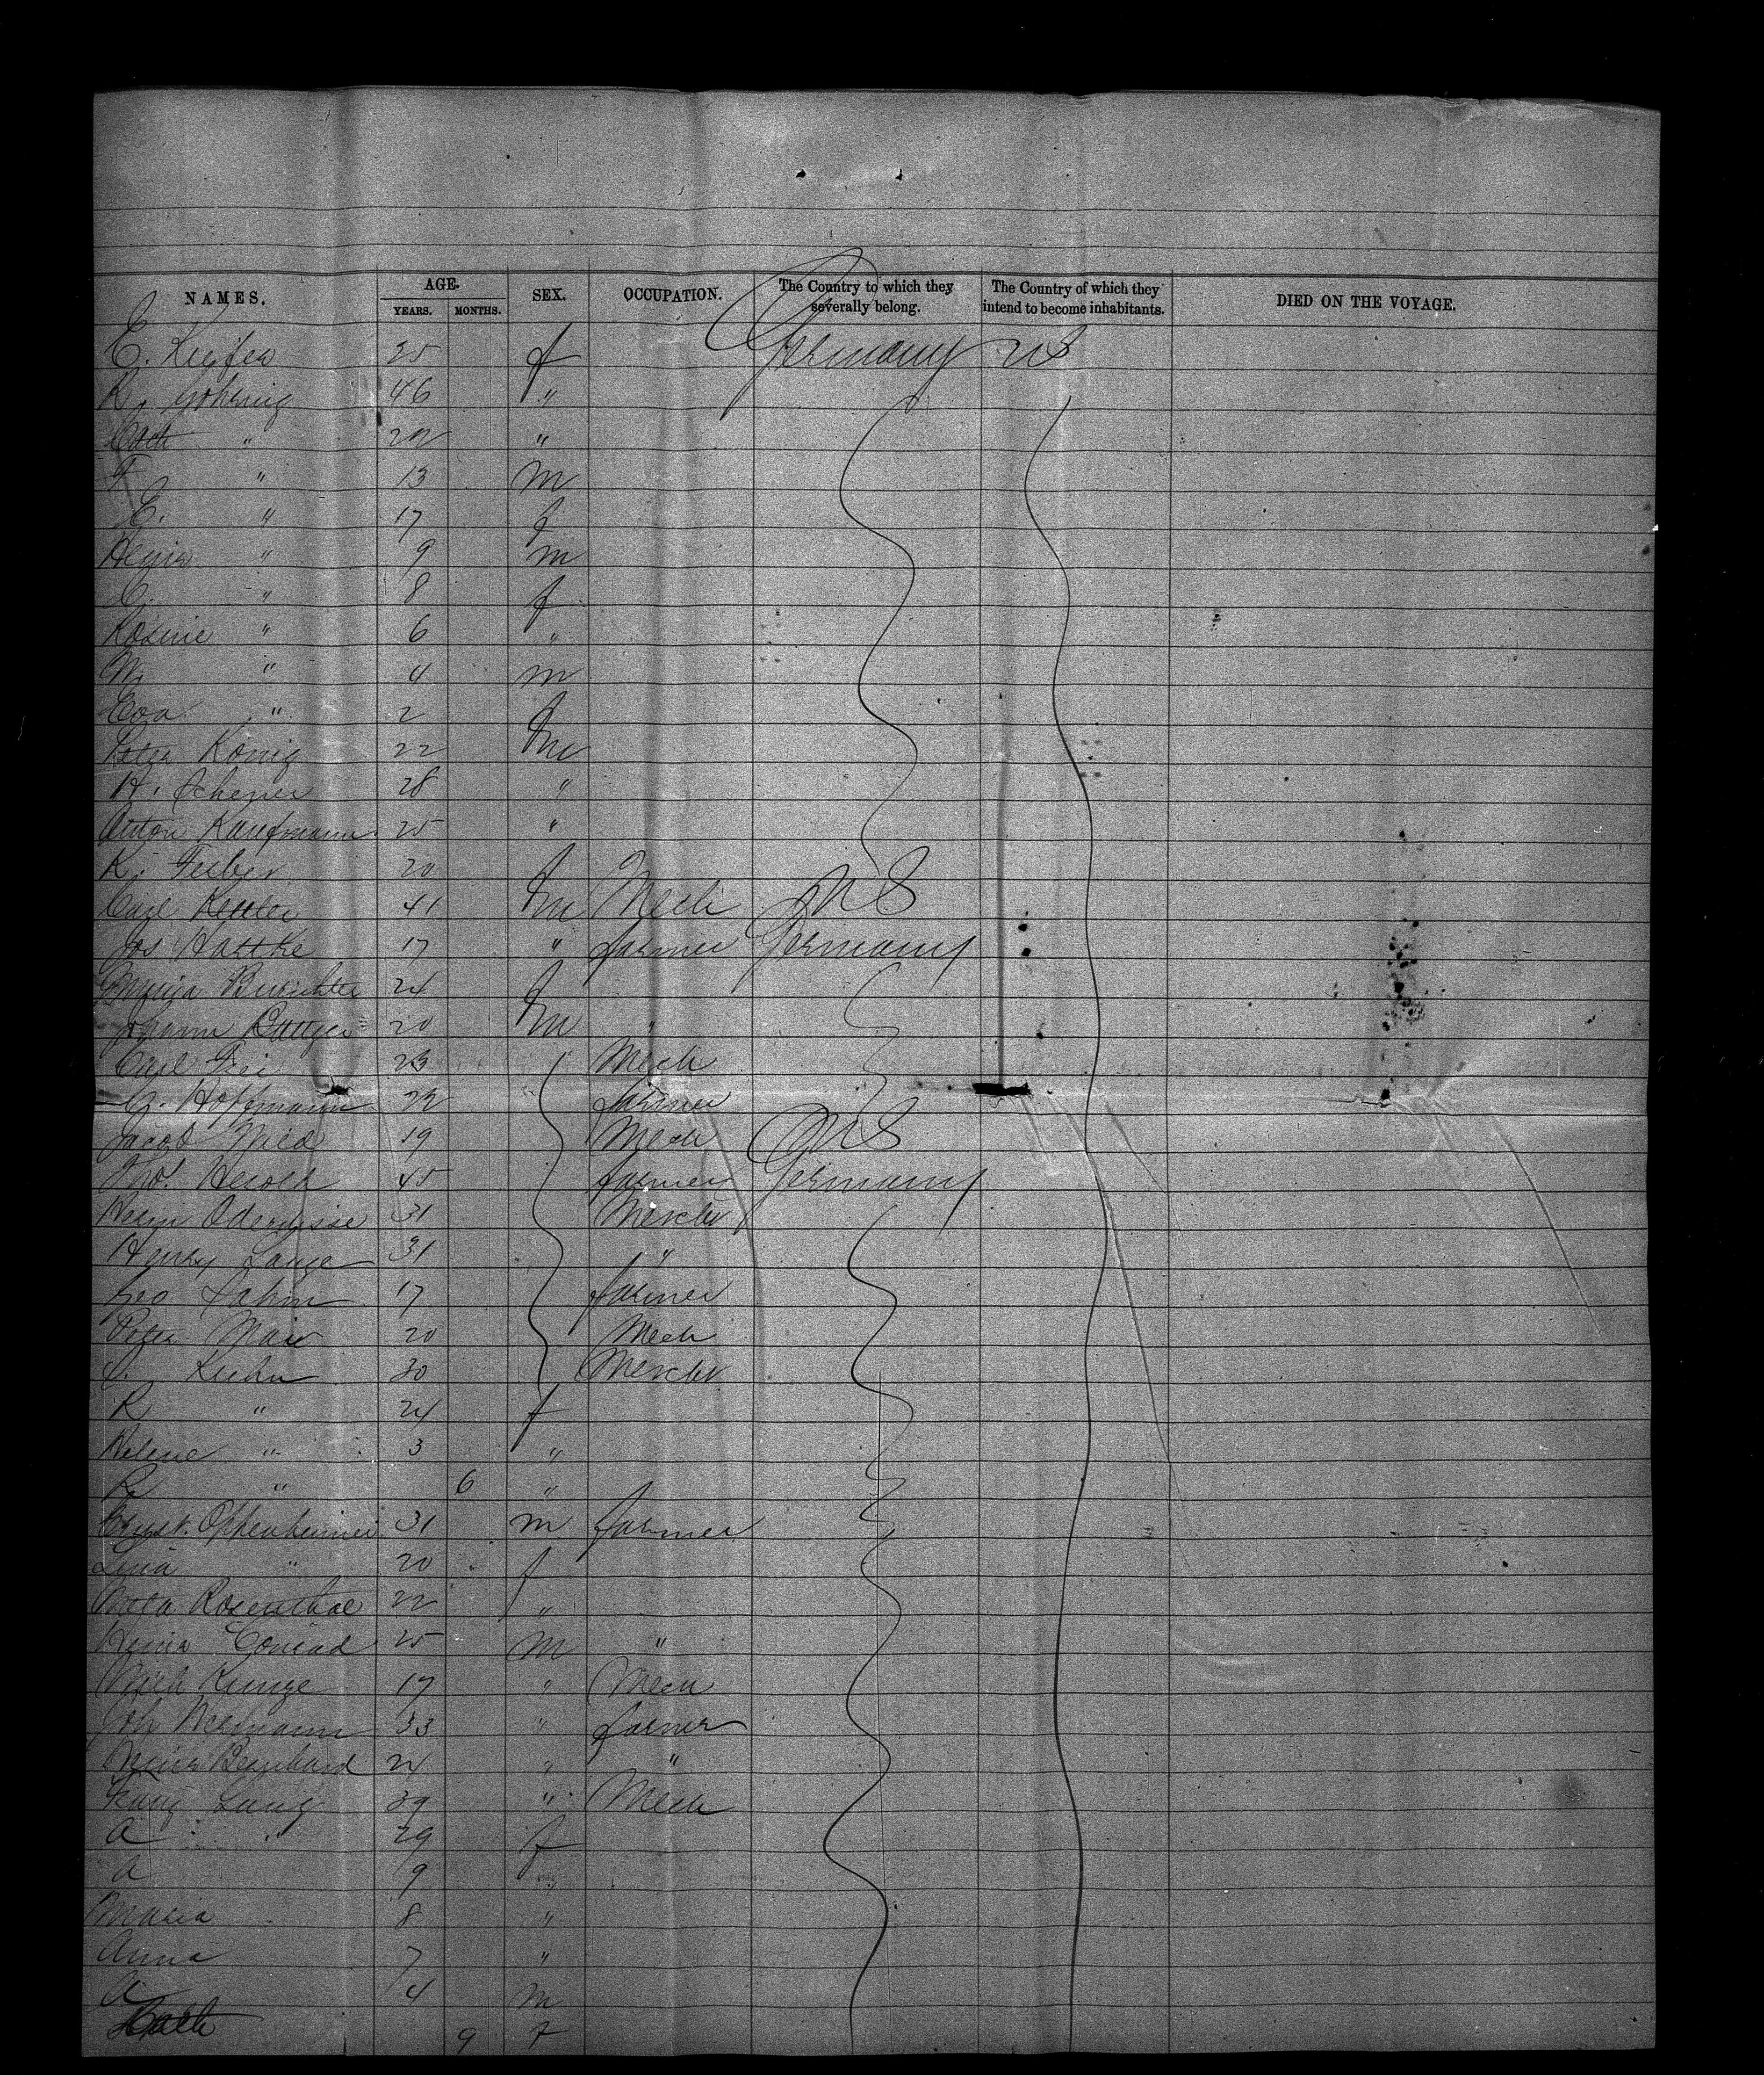 NAMES. AGE. YEARS. MONTHS. SEX. OCCUPATION. The Country to which they severally belong. The Country of which they intend to become inhabitants. DIED ON THE VOYAGE.
C. 25 f Germany US
K. Gohring 46 "
Cath " 22 "
F " 13 m
E. " 17 f
Heinr " 9 m
C. " 8 f
Rosine " 6 "
W. " 4 m
Eva " 2 f
Peter König 22 m
H. Scherer 28 "
Anton Kaufmann 25 "
K. Ferber 20 f
Carl Kettler 41 m Mech US
Jos Hattke 17 " farmer Germany
24 f
Johann Böttger 20 m "
Carl Frei 23 Mech
G. Hoffmann 22 farmer
Jacob Nied 19 Mech US
Herold 45 farmer Germany
31 Mercht
Henry Lange 31 "
Geo Jahn 17 farmer
Peter Mair 20 Mech
Kuhn 30 Mercht
R " 24 f
Helene " 3 "
R " 6 "
Oppenheimer 31 m farmer
Lina " 20 f
Meta Rosenthal 22 "
Heinr Conrad 25 m "
Kunze 17 " Mech
Joh 33 " farmer
Heinr Bernhard 24 " "
Franz Lang 39 " Mech
A " 29 f
A 9 "
Maria 8 "
Anna 7 "
A 4 m
Cath 9 f